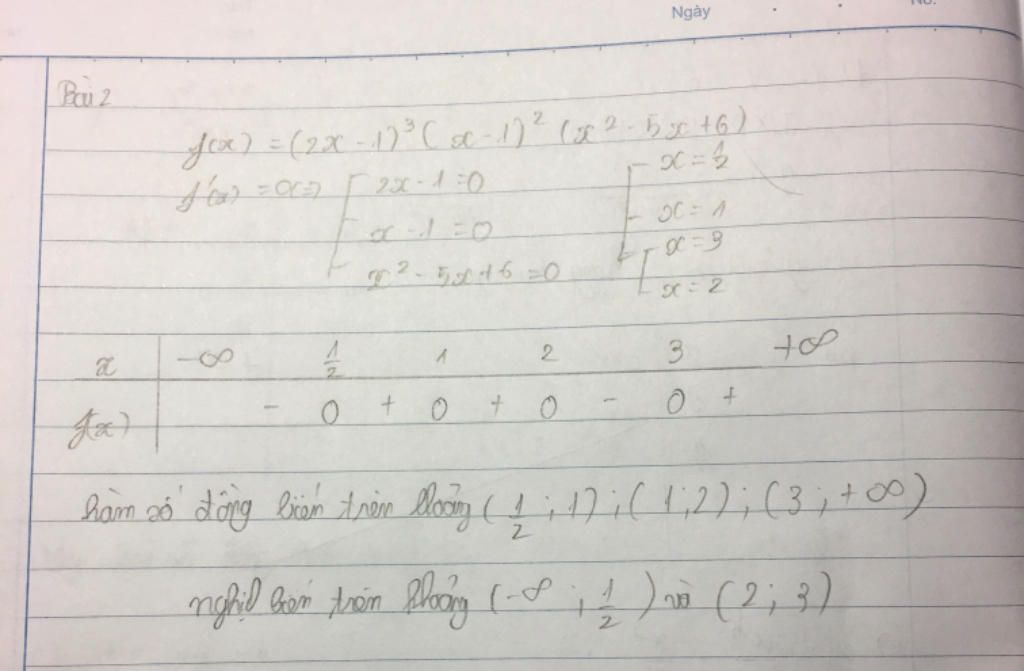 Ngày
No.
Bài 2
f(x) = (2x - 1)³ (x - 1)² (x² - 5x + 6)
f'(x) = 0 <=> [ 2x - 1 = 0 [ x = 1/2
x - 1 = 0 x = 1
x² - 5x + 6 = 0 [ x = 3
x = 2
x -∞ 1/2 1 2 3 +∞
f(x) - 0 + 0 + 0 - 0 +
hàm số đồng biến trên khoảng (1/2 ; 1) ; (1 ; 2) ; (3 ; +∞)
nghịch biến trên khoảng (-∞ ; 1/2) và (2 ; 3)